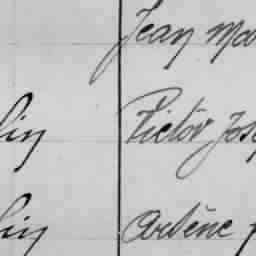 Jean Ma
lin Victor Jos
lin Arsène